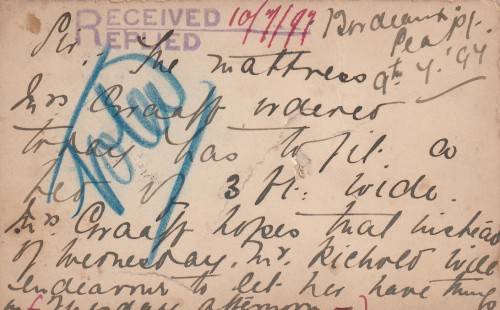 RECEIVED 10/7/97
REPLIED
Bordeaux
Sea Pt.
9th 7. '97
Sir. The mattress
Mrs Graaff ordered
today has to fit a
bed of 3 ft. wide.
Mrs Graaff hopes that instead
of Wednesday, Mr. Richold will
endeavour to let her have things
Thursday afternoon